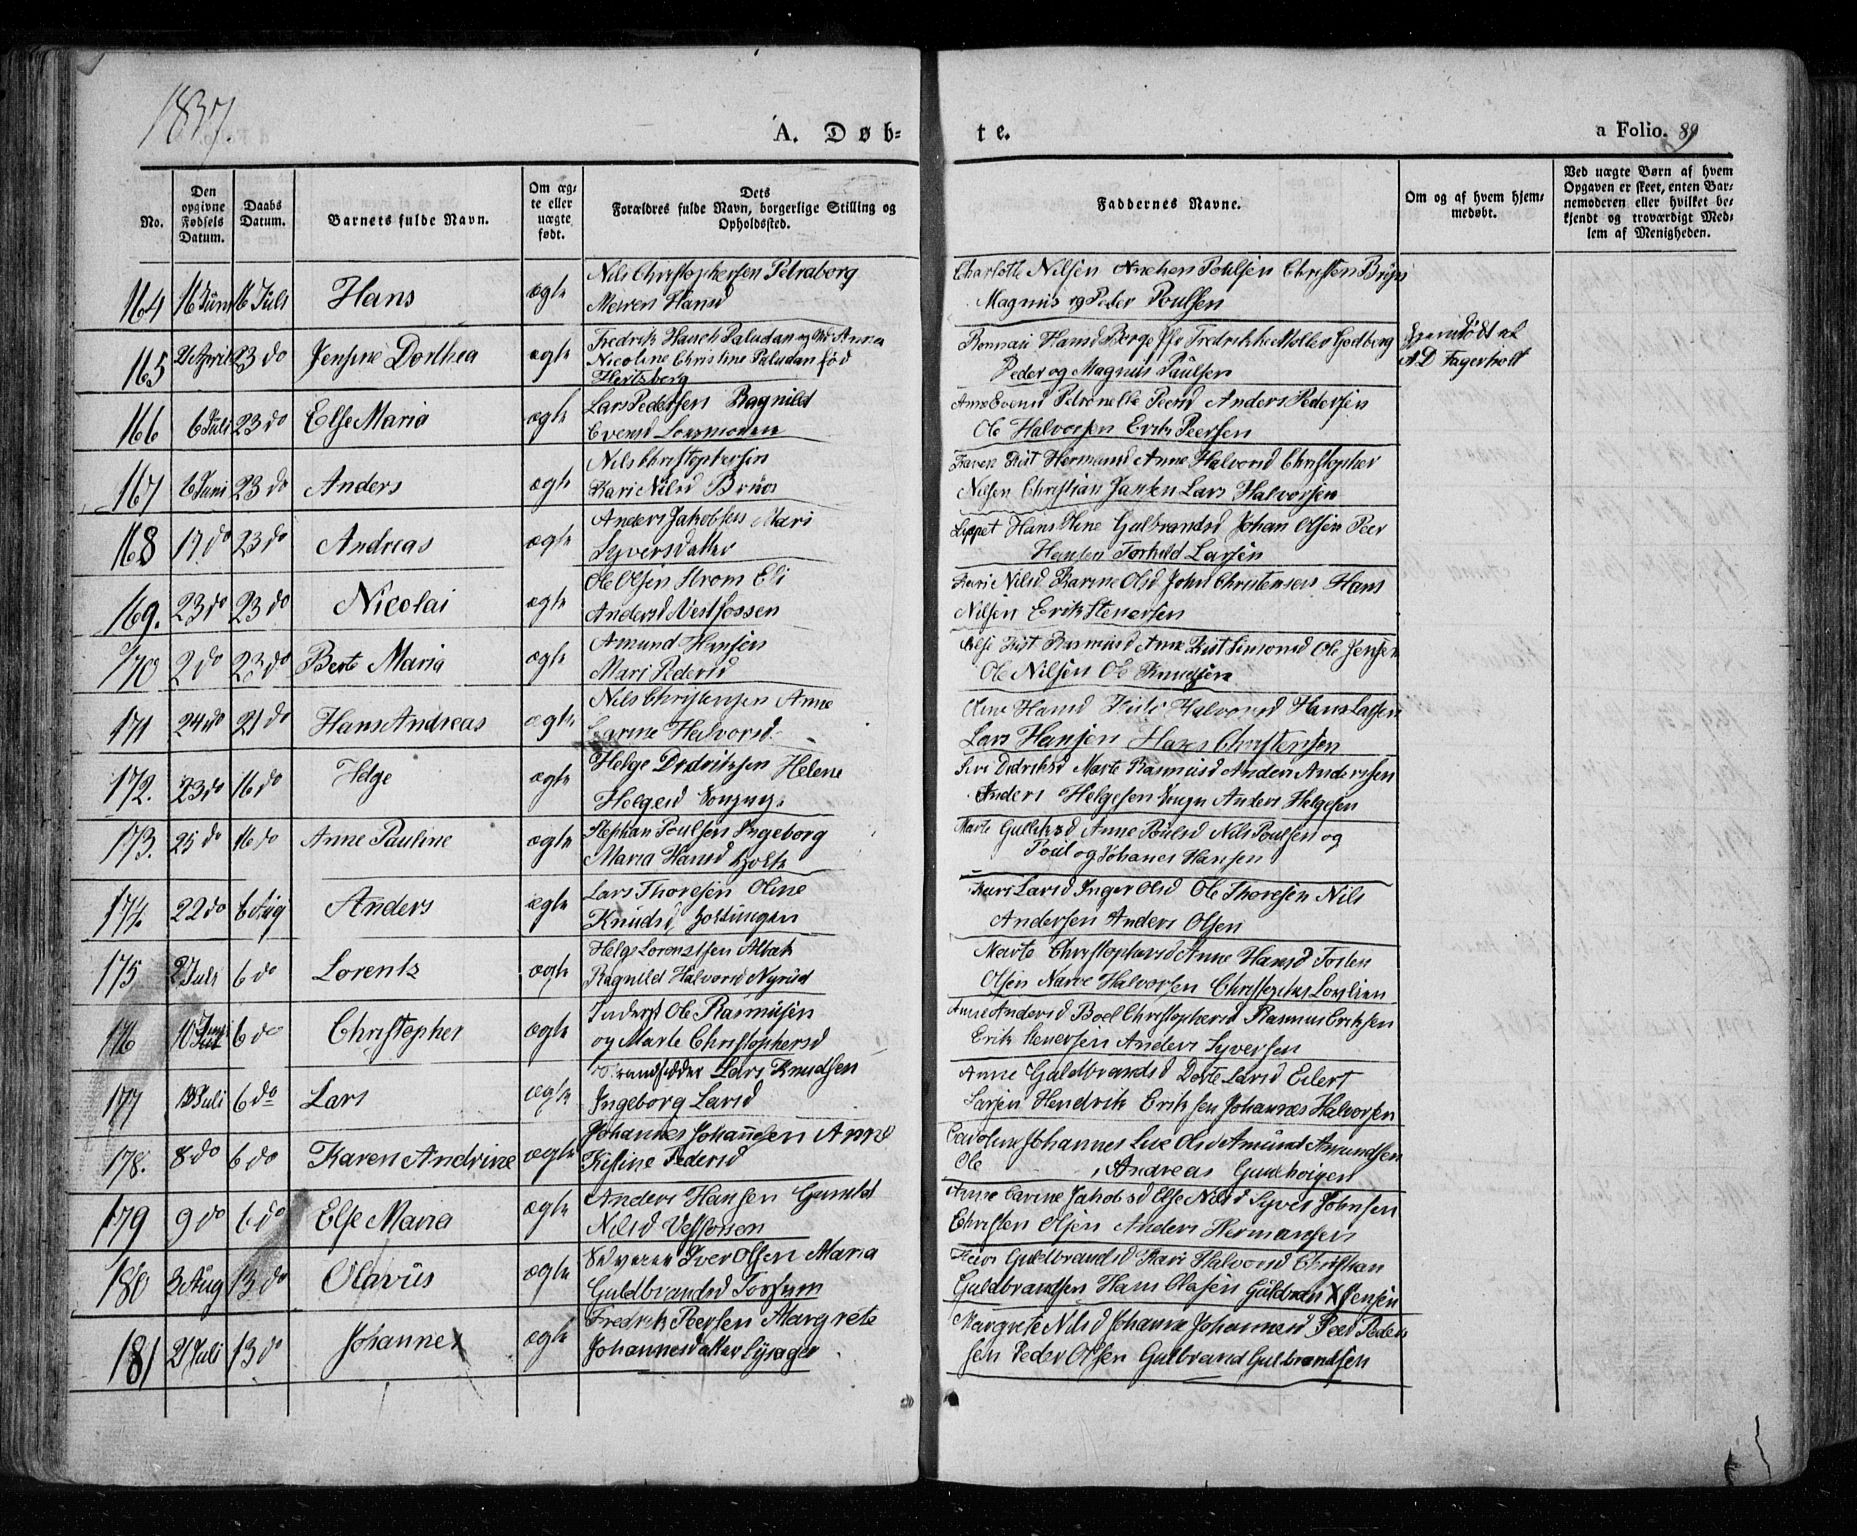 1837.
A. Døb-
te.
a Folio. 89
No.
Den opgivne Fødsels Datum.
Daabs Datum.
Barnets fulde Navn.
Om æg-te eller uægte født.
Dets Forældres fulde Navn, borgerlige Stilling og Opholdssted.
Faddernes Navne.
Om og af hvem hjem-medøbt.
Ved uægte Børn af hvem Opgaven er skeet, enten Bar-nemoderen eller hvilket be-kjendt og troværdigt Med-lem af Menigheden.
164 16 Juni 16 Juli Hans ægte Nils Christophersen Petraborg
Maren Hansd
Charlotte Nilsen Anchen Poulsen Christen Bruun
Magnus og Peder Poulsen
165 21 April 23 do Jensine Dorthea ægte Fredrik Hauch Paludan og Md Anna
Nicoline Christine Paludan fød
Hertzberg
Hansd Fredrikke Møller Godberg
Peder og Magnus Paulsen
Hjemdøbt af
A D Fagerholt
166 6 Juli 23 do Else Maria ægte Lars Pedersen Ragnild
Evensd
Anne Evensd Petronelle Peersd Anders Pedersen
Ole Halvorsen Erik Peersen
167 6 Juni 23 do Anders ægte Nils Christophersen
Kari Nilsd Bruus
Hermansd Anne Halvorsd Christopher
Nilsen Christian Jansen Lars Halvorsen
168 17 do 23 do Andreas ægte Anders Jakobsen Mari
Syversdatter
Hans Oline Gulbrandsd Johan Olsen Peer
Hansen Torkild Larsen
169. 23 do 23 do Nicolai ægte Ole Olsen Strøm Eli
Andersd Vestfossen
Kari Nilsd Karine Olsd John Christensen Hans
Nilsen Erik Stenersen
170 2 do 23 do Berte Maria ægte Amund Hansen
Mari Pedersd
Else Kist Rasmusd Anne Kist Simonsd Ole Jensen
Ole Nilsen Ole Knudsen
171 24 do 21 do Hans Andreas ægte Nils Christensen Anne
Karine Halvorsd
Oline Hansd Halvorsd Hans Larsen
Lars Hansen Hans Christensen
172. 23 do 16 do Helge ægte Helge Dedriksen Helene
Helgesd
Siri Didriksd Marte Rasmusd Anders Andersen
Anders Helgesen Anders Helgesen
173. 25 do 16 do Anne Pauline ægte Stephan Poulsen Ingeborg
Maria Hansd Holte
Marte Gulliksd Anne Poulsd Nils Poulsen og
Poul og Johanes Hansen
174. 22 do 6 Aug Anders ægte Lars Thoresen Oline
Knudsd
Kari Larsd Inger Olsd Ole Thoresen Nils
Andersen Anders Olsen
175 2 Juli 6 do Lorents ægte Helge Lorentsen
Ragnild Halvorsd Nyrud
Marte Christophersd Anne Hansd Tosten
Olsen Narve Halvorsen Christopher
176 10 Juni 6 do Christopher ægte Inderst Ole Rasmusen
og Marte Christophersd
Anne Andersd Boel Christophersd Rasmus Eriksen
Erik Stenersen Anders Syversen
177 13 Juli 6 do Lars ægte Strandsidder Lars Knudsen
Ingeborg Larsd
Anne Guldbrandsd Dorte Larsd Eilert
Larsen Hendrik Eriksen Johannes Halvorsen
178. 8 do 6 do Karen Andrine ægte Johannes Johannesen Anne
Kistine Pedersd
Caroline Johannes Lise Olsd Amund Amundsen
Ole Andreas
179 9 do 6 do Else Maria ægte Anders Hansen Gunild
Nilsd Vestfossen
Anne Carine Jakobsd Else Nilsd Syver Johnsen
Christen Olsen Anders Hermansen
180 3 Aug 13 do Olavus ægte Selveier Iver Olsen Maria
Guldbrandsd Forsum
Guldbrandsd Kari Halvorsd Christian
Guldbrandsen Hans Olasen Guldbran Jensen
181 21 Juli 13 do Johannes ægte Fredrik Peersen Margrete
Johannesdatter Lysager
Margrete Nilsd Johanne Johannesd Peer Peder
sen Peder Olsen Gulbrand Gulbrandsen